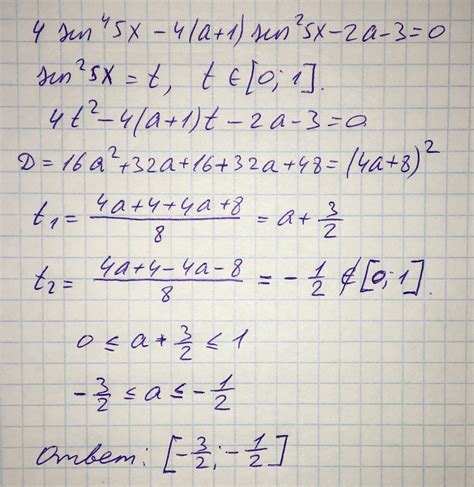 4 sin⁴5x − 4(a+1) sin²5x − 2a − 3 = 0
sin²5x = t, t ∈ [0; 1].
4t² − 4(a+1)t − 2a − 3 = 0
D = 16a² + 32a + 16 + 32a + 48 = (4a+8)²
t₁ = (4a+4+4a+8)/8 = a + 3/2
t₂ = (4a+4−4a−8)/8 = −1/2 ∉ [0; 1].
0 ≤ a + 3/2 ≤ 1
−3/2 ≤ a ≤ −1/2
Ответ: [−3/2; −1/2]